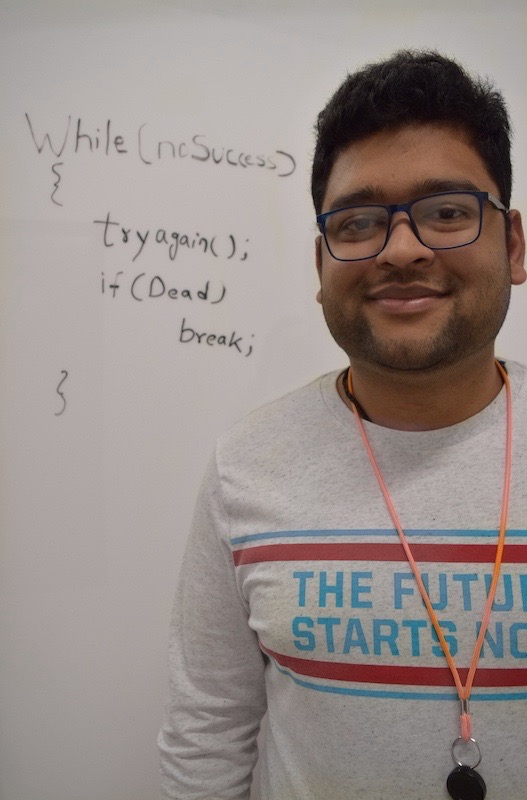 While (noSuccess)
{
tryagain();
if (Dead)
break;
}
THE FUTU
STARTS NO